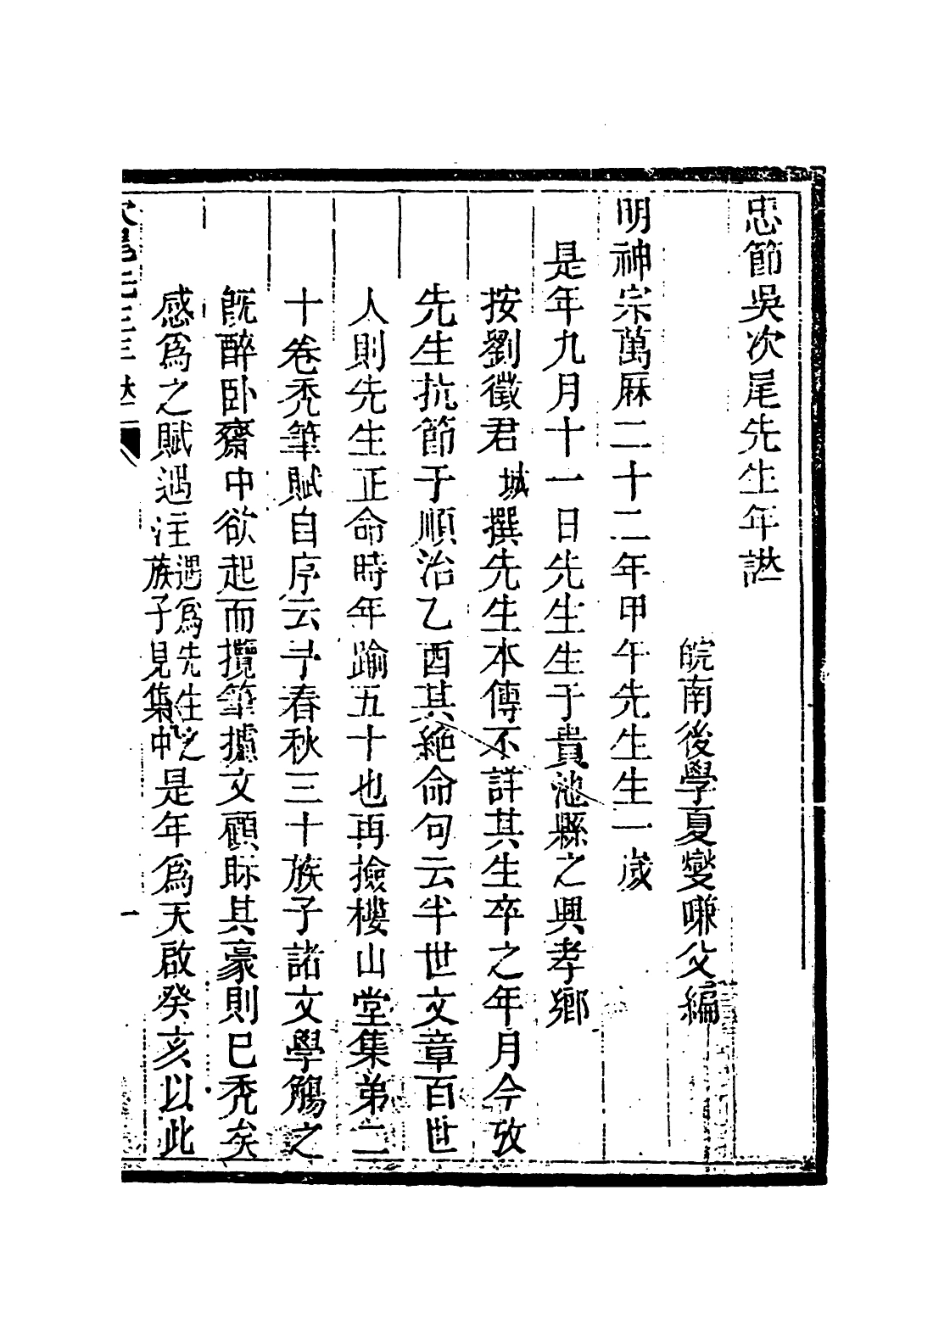 忠節吳次尾先生年譜
皖南後學夏燮嗛父編
明神宗萬厤二十二年甲午先生生一歲
是年九月十一日先生生于貴池縣之興孝鄉
按劉徵君城撰先生本傳不詳其生卒之年月今攷
先生抗節于順治乙酉其絕命句云半世文章百世
人則先生正命時年踰五十也再撿樓山堂集弟二
十卷禿筆賦自序云予春秋三十族子諸文學觴之
旣醉卧齋中欲起而攬筆攄文顧眎其豪則已禿矣
感爲之賦遇注遇爲先生之族子見集中是年爲天啟癸亥以此
次尾先生年譜
一